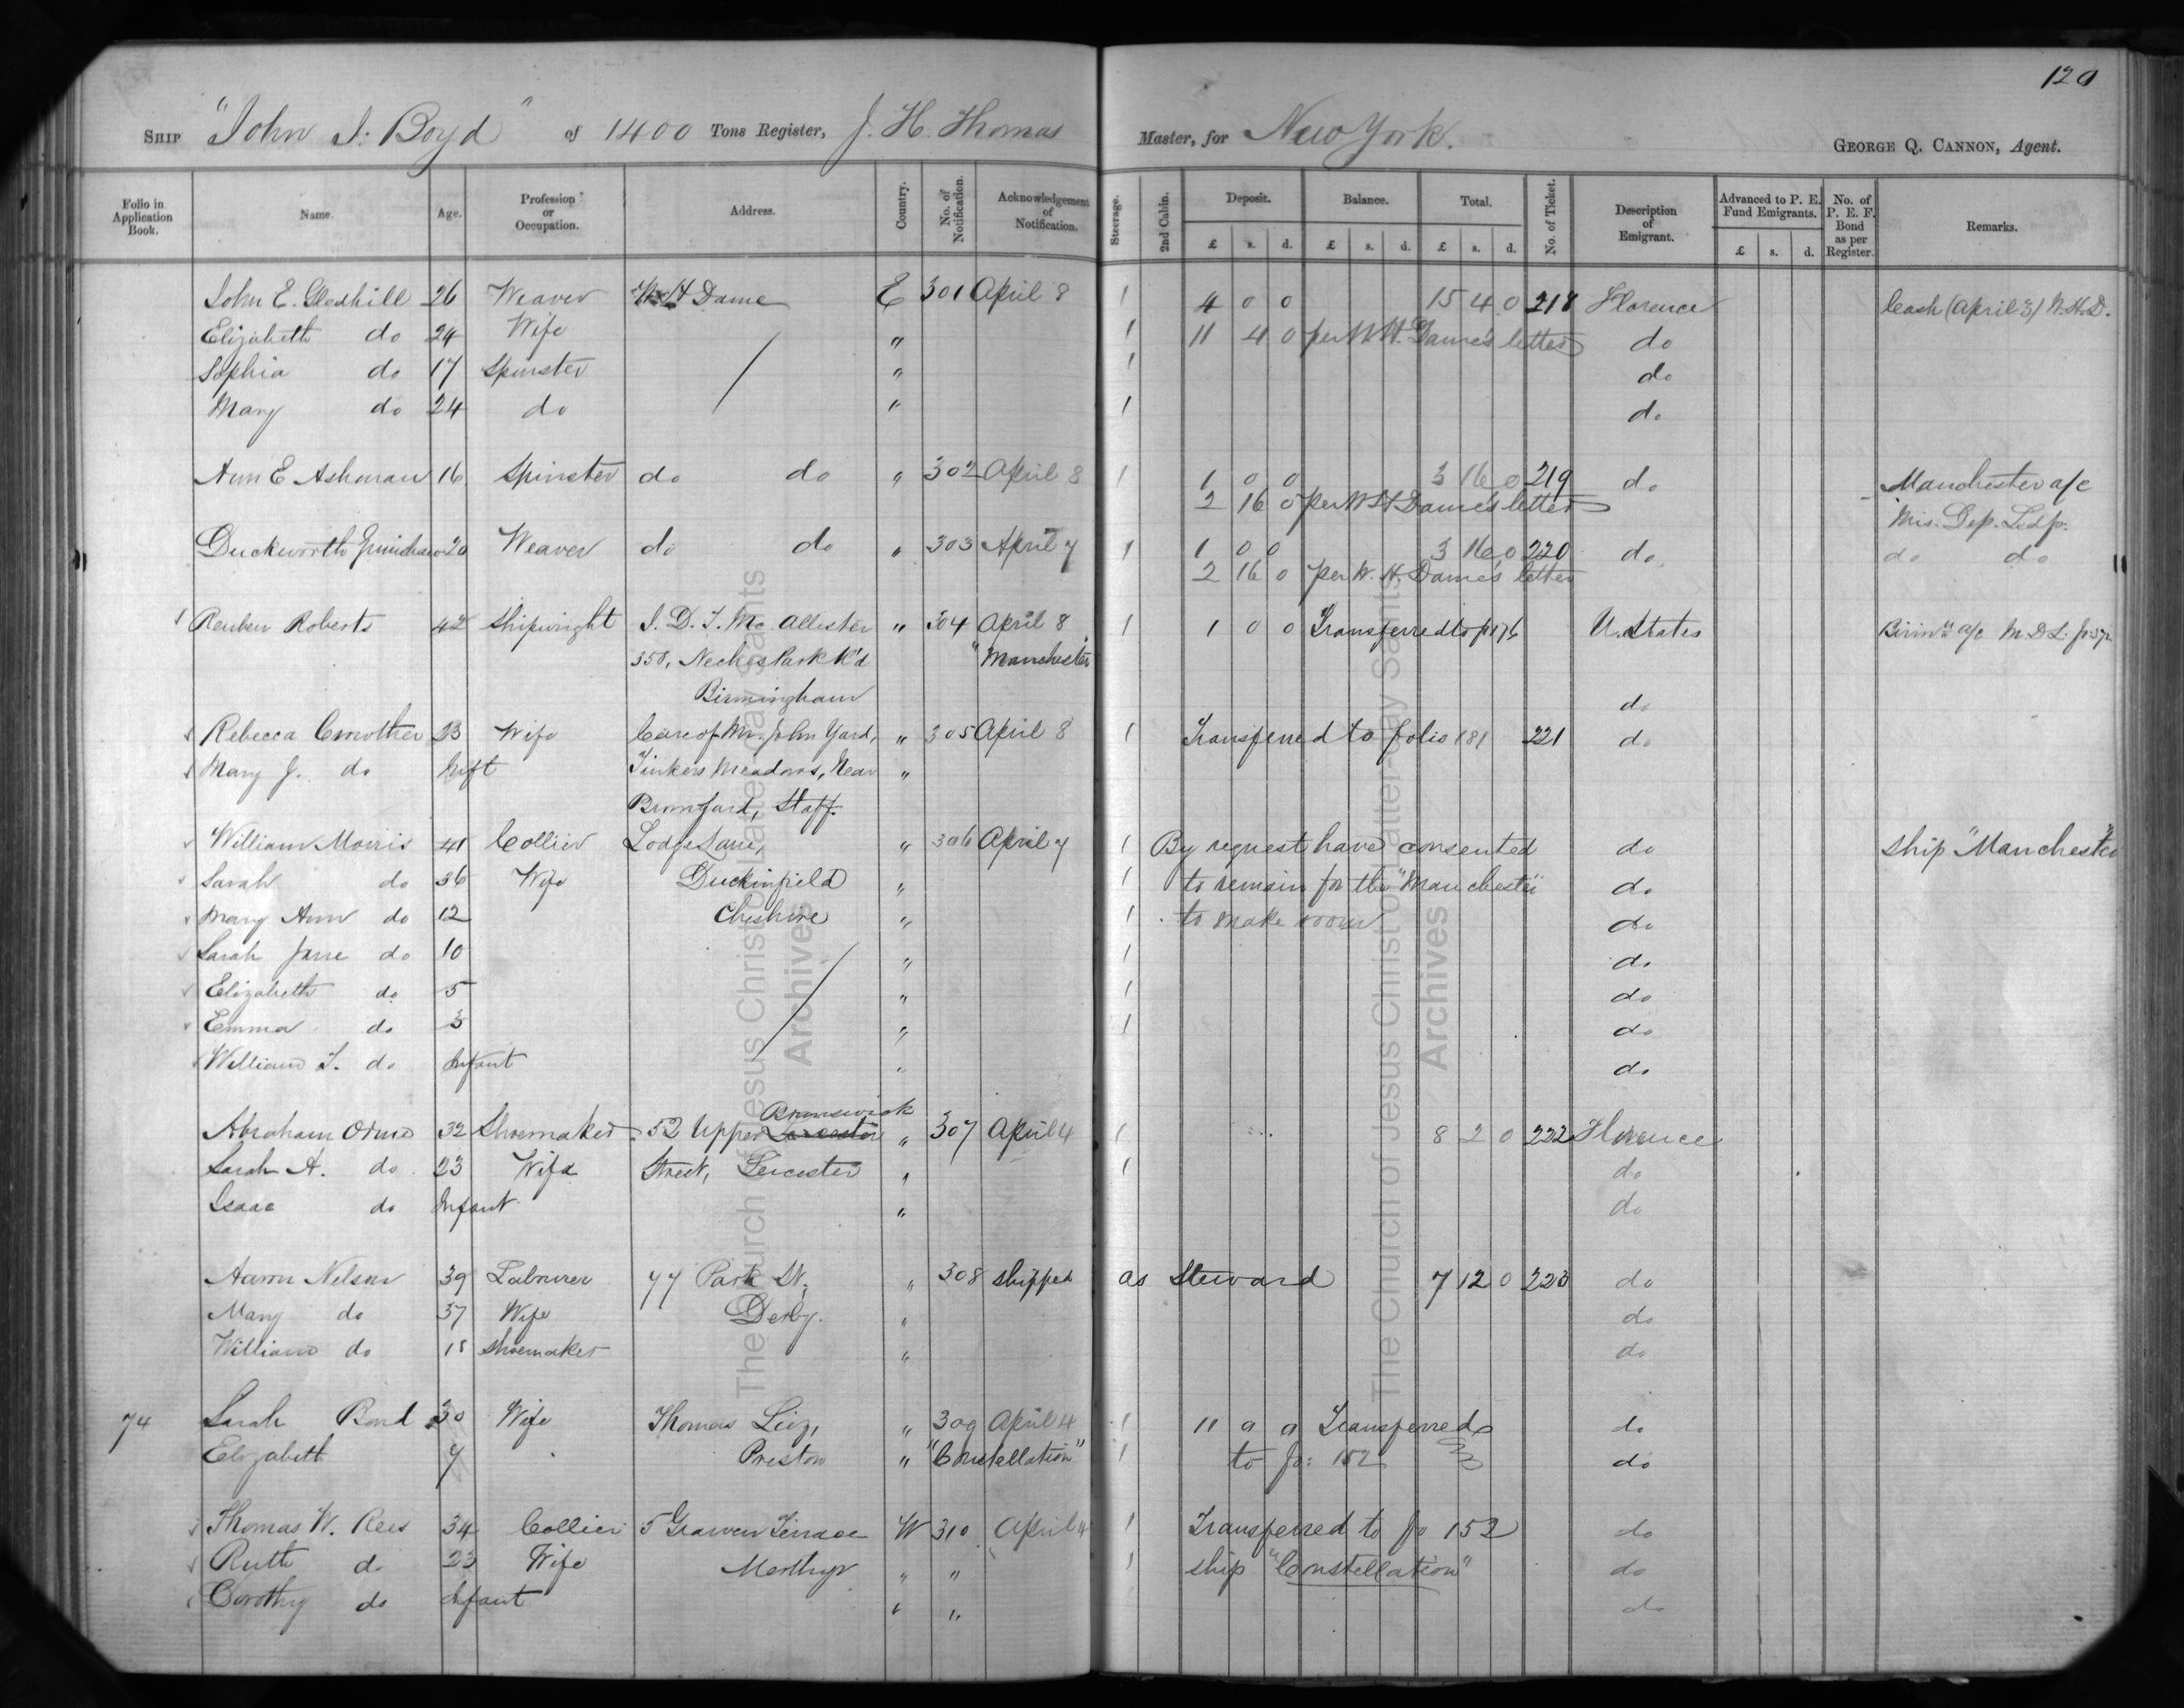 120
SHIP "John J. Boyd" of 1400 Tons Register, J. H. Thomas Master, for New York. GEORGE Q. CANNON, Agent.
Folio in Application Book. Name. Age. Profession or Occupation. Address. Country. No. of Notification. Acknowledgement of Notification. Steerage. 2nd Cabin. Deposit. £ s. d. Balance. £ s. d. Total. £ s. d. No. of Ticket. Description of Emigrant. Advanced to P. E. Fund Emigrants. £ s. d. No. of P. E. F. Bond as per Register. Remarks.
John E. Gledhill 26 Weaver W H Dame E 301 April 8 1 4 0 0 15 4 0 218 Florence Cash (April 3) W.H.D.
Elizabeth do 24 Wife " 1 11 4 0 per W. H. Dame's letter do
Sophia do 17 Spinster " 1 do
Mary do 24 do " 1 do
Ann E Ashman 16 Spinster do do " 302 April 8 1 1 0 0 3 16 0 219 do Manchester a/c
2 16 0 per W H Dame's letter Mis. Dep. Led p.
Duckworth Grimshaw 20 Weaver do do " 303 April 7 1 1 0 0 3 16 0 220 do do do
2 16 0 per W. H. Dame's letter
Reuben Roberts 42 Shipwright J. D. T. Mc. Allister " 304 April 8 1 1 0 0 Transferred to p 176 U. States
350, Park R'd "Manchester"
Birmingham do
Rebecca Crowther 23 Wife Care of Mr. John Yard, " 305 April 8 1 Transferred to folio 181 221 do
Mary J. do Inft Tinkers Meadows, Near "
Staff.
William Morris 41 Collier Lodge Lane, " 306 April 7 1 By request have consented do Ship "Manchester"
Sarah do 36 Wife Duckinfield " 1 to remain for the "Manchester" do
Mary Ann do 12 Cheshire " 1 to make room do
Sarah Jane do 10 " 1 do
Elizabeth do 5 " 1 do
Emma do 3 " 1 do
William T. do Infant " do
Brunswick
Abraham Orme 32 Shoemaker 52 Upper " 307 April 4 1 8 2 0 222 Florence
Sarah A. do 23 Wife Street, Leicester " 1 do
Isaac do Infant " do
Aaron Nelson 39 Labourer 77 Park St. " 308 shipped as Steward 7 12 0 223 do
Mary do 37 Wife Derby. " do
William do 18 Shoemaker " do
74 Sarah Bond 30 Wife Thomas Liez, " 309 April 4 1 11 0 0 Transferred do
Elizabeth 9 Preston " "Constellation" 1 to fo: 152 do
Thomas W. Rees 34 Collier 5 Terrace W 310 April 4 1 Transferred to fo 152 do
Ruth do 23 Wife Merthyr " " 1 ship "Constellation" do
Dorothy do Infant " " do
The Church of Jesus Christ of Latter-day Saints
Archives
The Church of Jesus Christ of Latter-day Saints
Archives